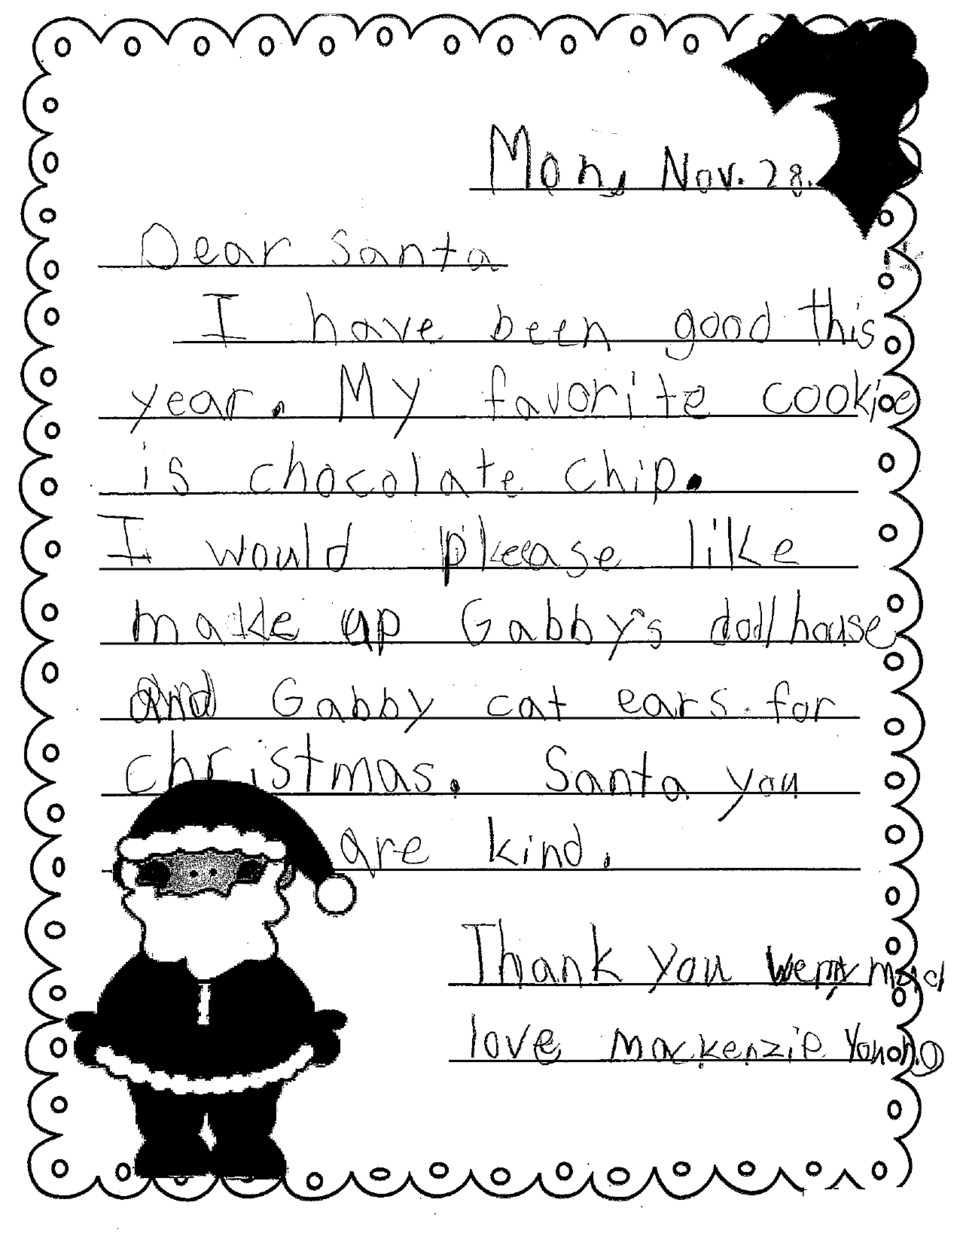 Mon, Nov. 28.
Dear Santa
I have been good this
year. My favorite cookie
is chocolate chip.
I would please like
make up Gabby's dollhouse
and Gabby cat ears for
christmas. Santa you
are kind.
Thank you
love mackenzie